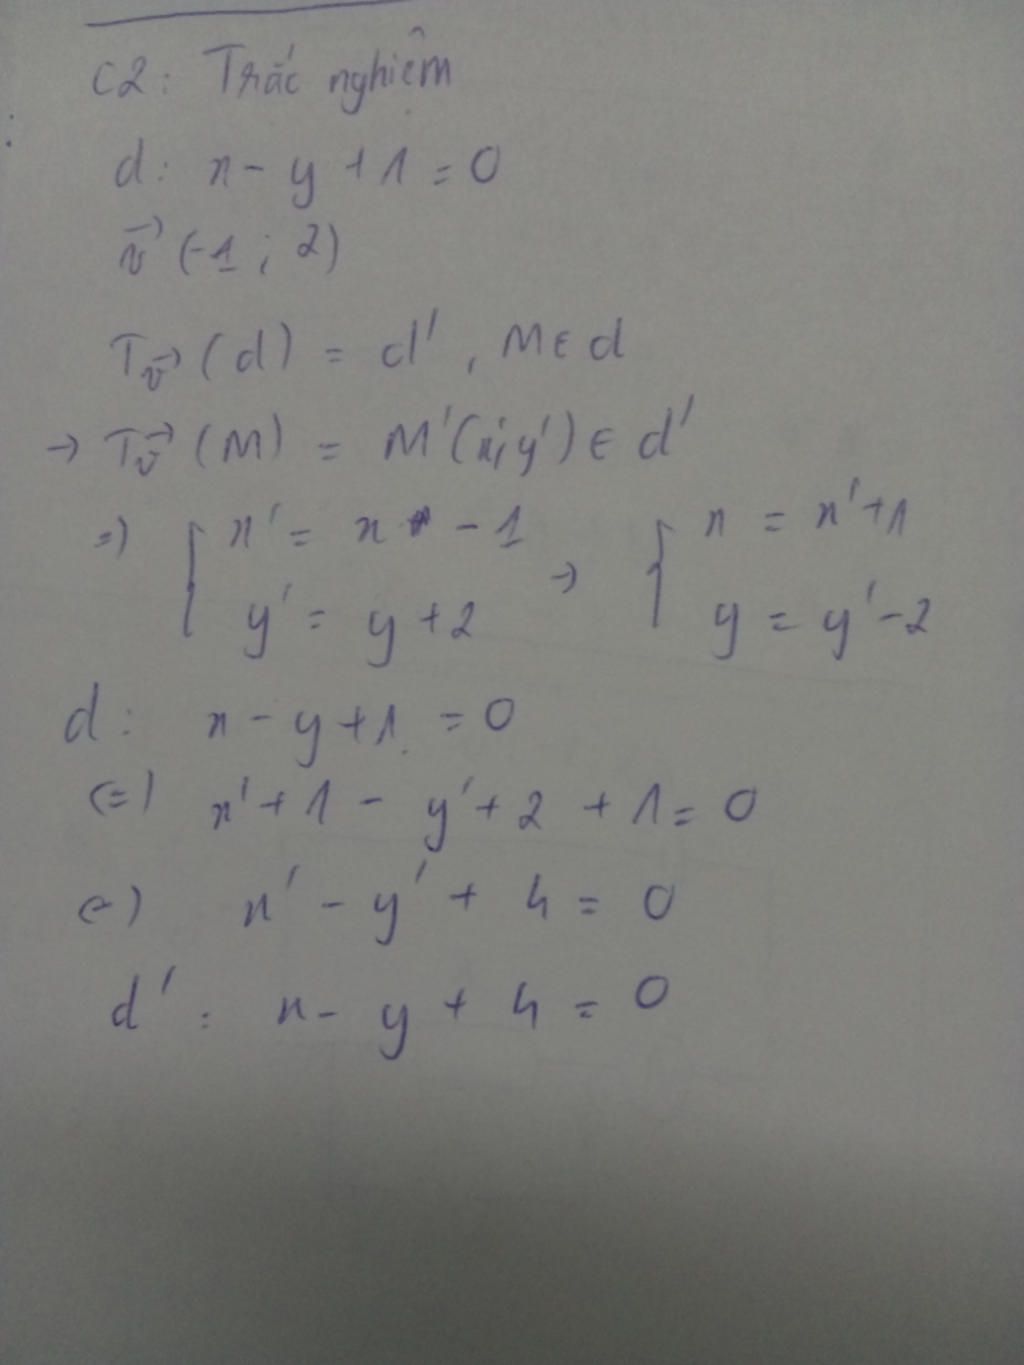 C2: Trắc nghiệm
d: x - y + 1 = 0
v⃗ (-1 ; 2)
Tv⃗ (d) = d' , M ∈ d
→ Tv⃗ (M) = M'(x', y') ∈ d'
=) { x' = x - 1 → { x = x' + 1
y' = y + 2 y = y' - 2
d: x - y + 1 = 0
(=) x' + 1 - y' + 2 + 1 = 0
(=) x' - y' + 4 = 0
d' : x - y + 4 = 0